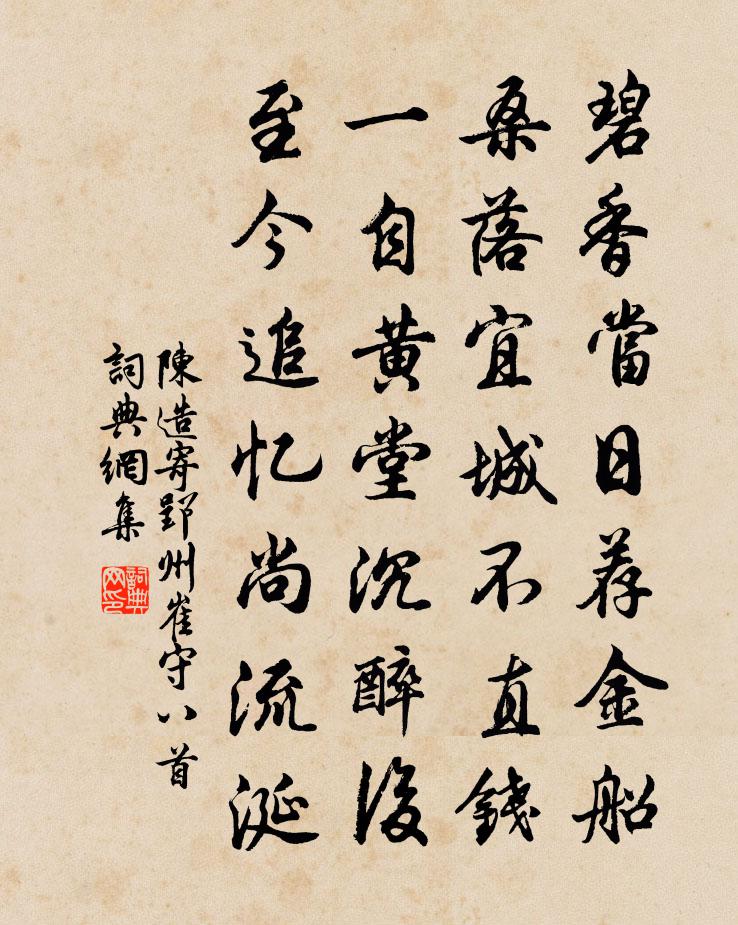 碧香當日荐金船
桑落宜城不直錢
一自黄堂沉醉後
至今追忆尚流涎
陳造寄郢州崔守八首
詞典網集
詞典
网印